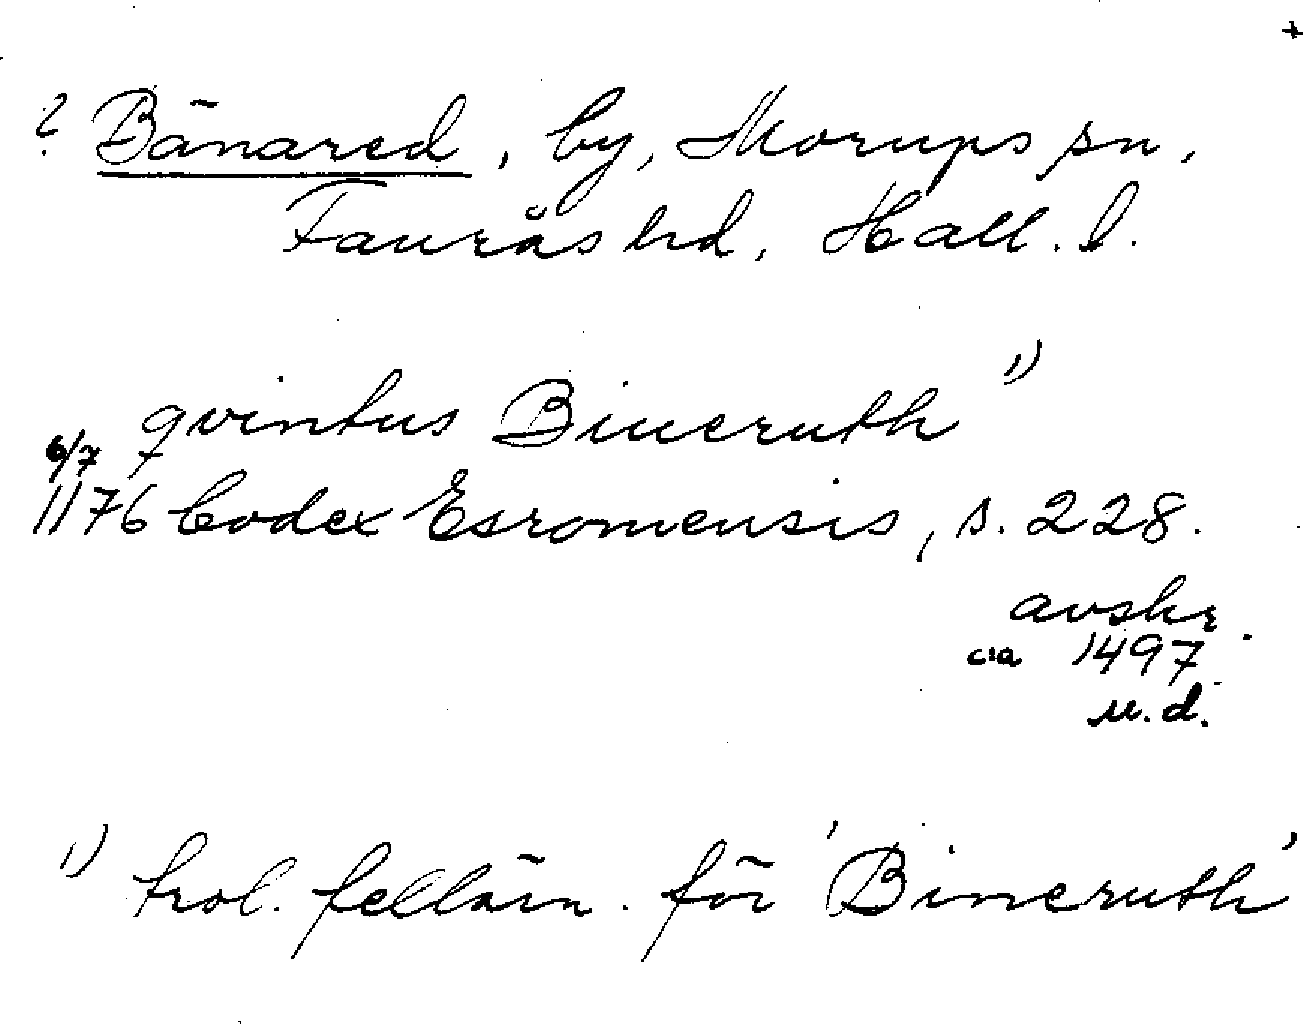 +
? Bänared, by, Morups sn,
Fauräs hd, Hall. l.
qvintus Biueruth 1)
6/7
1176 Codex Esromensis, s. 228.
avskr.
cia 1497
u.d.
1) trol. felläsn. för 'Bineruth'